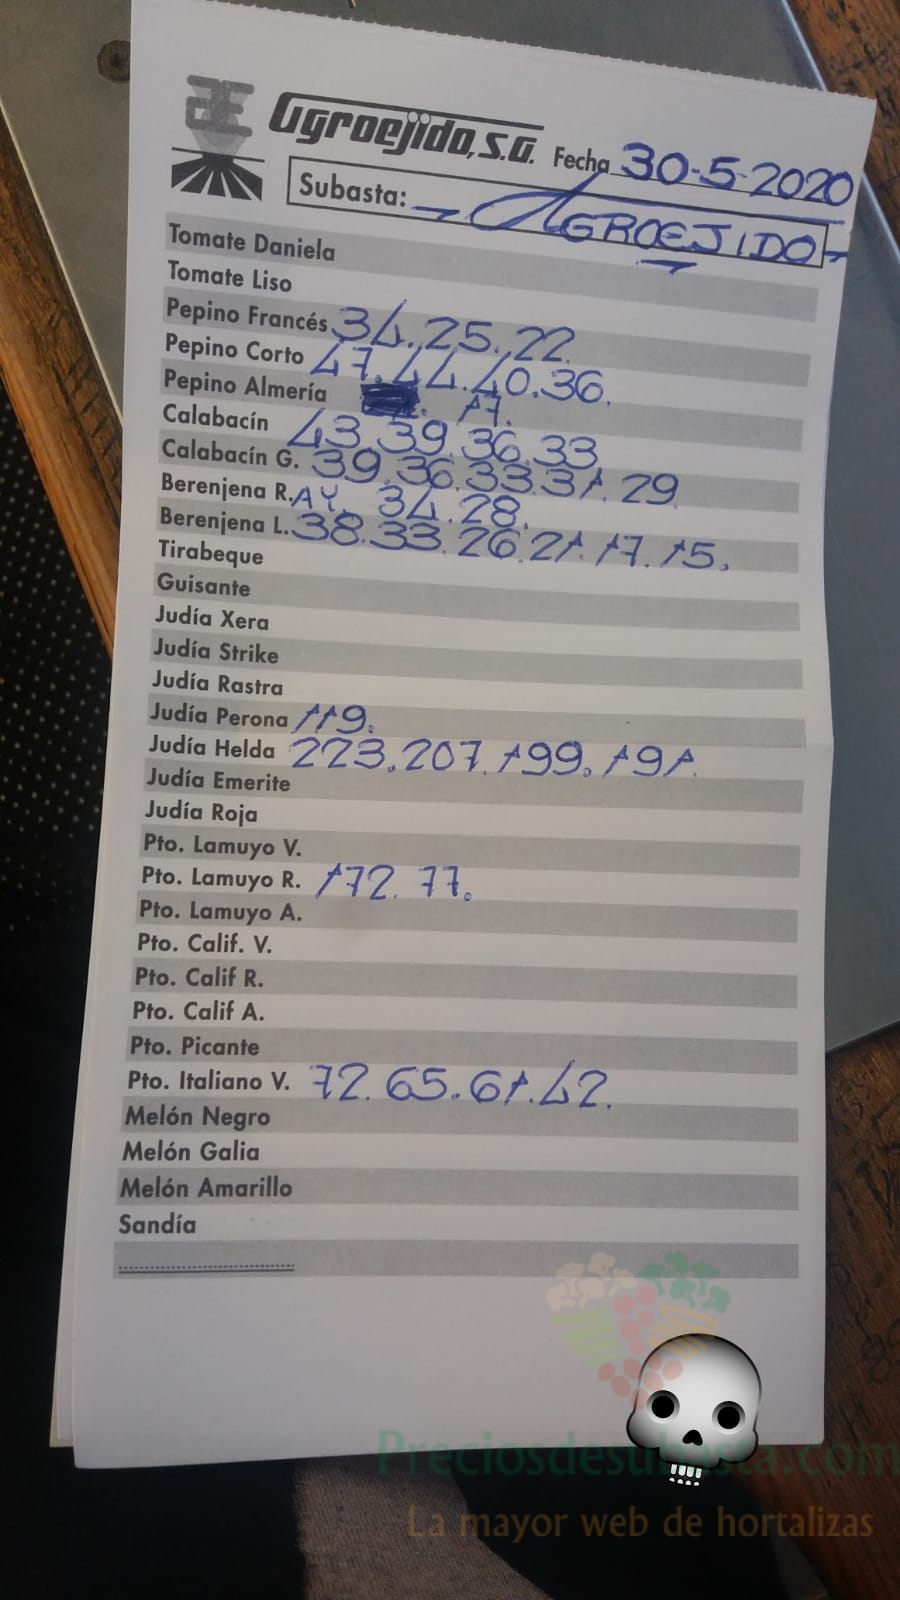 Agroejido, S.A. Fecha 30-5-2020
Subasta: - AGROEJIDO -
Tomate Daniela
Tomate Liso
Pepino Francés 34. 25. 22.
Pepino Corto 47. 44. 40. 36.
Pepino Almería 17.
Calabacín 43. 39. 36. 33
Calabacín G. 39. 36. 33. 31. 29
Berenjena R. AY. 34. 28.
Berenjena L. 38. 33. 26. 21. 17. 15.
Tirabeque
Guisante
Judía Xera
Judía Strike
Judía Rastra
Judía Perona 119.
Judía Helda 223. 207. 199. 191.
Judía Emerite
Judía Roja
Pto. Lamuyo V.
Pto. Lamuyo R. 172. 77.
Pto. Lamuyo A.
Pto. Calif. V.
Pto. Calif R.
Pto. Calif A.
Pto. Picante
Pto. Italiano V. 72. 65. 61. 42.
Melón Negro
Melón Galia
Melón Amarillo
Sandía
Preciosdesubasta.com
La mayor web de hortalizas